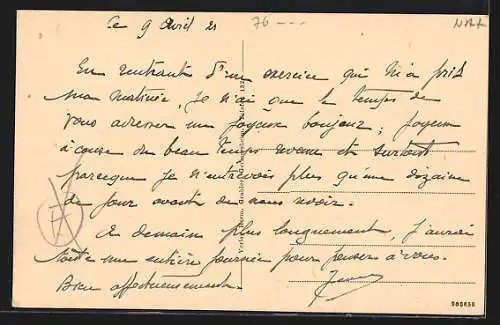 Ce 9 Avril 21
76 ---
En rentrant d'un exercice qui m'a pris
ma matinée, je n'ai que le temps de
vous adresser un joyeux bonjour; joyeux
à cause du beau temps revenu et surtout
parceque je n'entrevois plus qu'une dizaine
de jour avant de nous revoir.
A demain plus longuement, j'aurai
toute une entière journée pour penser à vous.
Bien affectueusement.